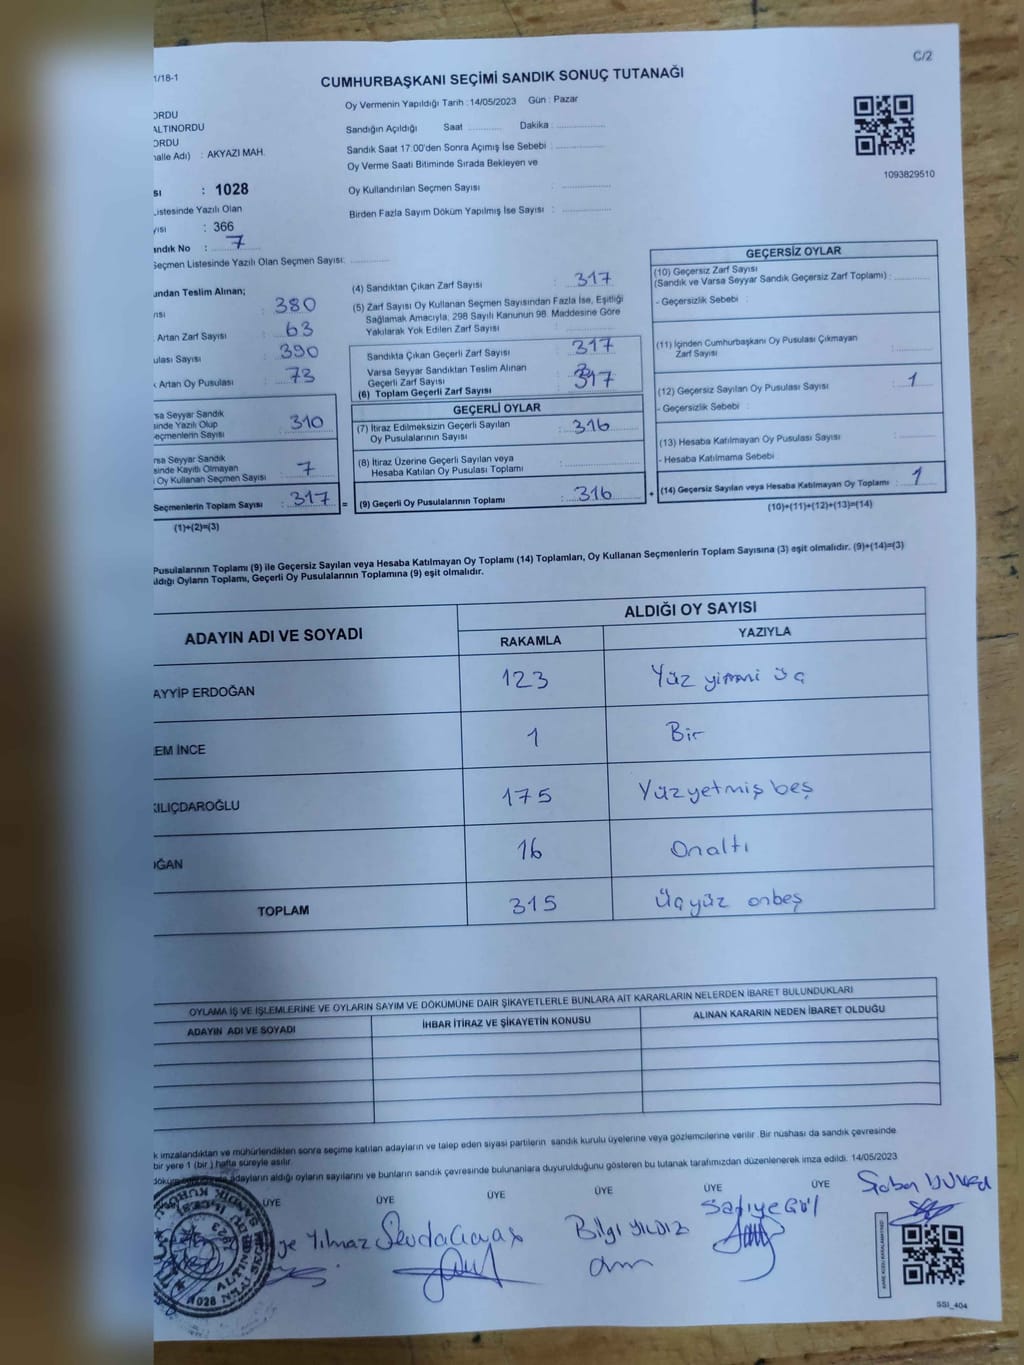 C/2
1/18-1
CUMHURBAŞKANI SEÇİMİ SANDIK SONUÇ TUTANAĞI
Oy Vermenin Yapıldığı Tarih : 14/05/2023 Gün : Pazar
ORDU
ALTINORDU
ORDU
halle Adı) : AKYAZI MAH.
Sandığın Açıldığı Saat Dakika
Sandık Saat 17.00'den Sonra Açımış İse Sebebi :
Oy Verme Saati Bitiminde Sırada Bekleyen ve
Oy Kullandırılan Seçmen Sayısı :
Birden Fazla Sayım Döküm Yapılmış İse Sayısı :
1093829510
sı : 1028
Listesinde Yazılı Olan
yısı : 366
andık No : 7
Seçmen Listesinde Yazılı Olan Seçmen Sayısı:
undan Teslim Alınan;
ısı : 380
Artan Zarf Sayısı : 63
ulası Sayısı : 390
Artan Oy Pusulası : 73
rsa Seyyar Sandık
sinde Yazılı Olup
eçmenlerin Sayısı : 310
rsa Seyyar Sandık
sinde Kayıtlı Olmayan
Oy Kullanan Seçmen Sayısı : 7
Seçmenlerin Toplam Sayısı : 317 =
(1)+(2)=(3)
(4) Sandıktan Çıkan Zarf Sayısı : 317
(5) Zarf Sayısı Oy Kullanan Seçmen Sayısından Fazla İse, Eşitliği
Sağlamak Amacıyla; 298 Sayılı Kanunun 98. Maddesine Göre
Yakılarak Yok Edilen Zarf Sayısı :
Sandıkta Çıkan Geçerli Zarf Sayısı : 317
Varsa Seyyar Sandıktan Teslim Alınan
Geçerli Zarf Sayısı
(6) Toplam Geçerli Zarf Sayısı 317
GEÇERLİ OYLAR
(7) İtiraz Edilmeksizin Geçerli Sayılan
Oy Pusulalarının Sayısı : 316
(8) İtiraz Üzerine Geçerli Sayılan veya
Hesaba Katılan Oy Pusulası Toplamı :
(9) Geçerli Oy Pusulalarının Toplamı : 316 +
GEÇERSİZ OYLAR
(10) Geçersiz Zarf Sayısı
(Sandık ve Varsa Seyyar Sandık Geçersiz Zarf Toplamı) :
- Geçersizlik Sebebi :
(11) İçinden Cumhurbaşkanı Oy Pusulası Çıkmayan
Zarf Sayısı :
(12) Geçersiz Sayılan Oy Pusulası Sayısı : 1
- Geçersizlik Sebebi :
(13) Hesaba Katılmayan Oy Pusulası Sayısı :
- Hesaba Katılmama Sebebi :
(14) Geçersiz Sayılan veya Hesaba Katılmayan Oy Toplamı : 1
(10)+(11)+(12)+(13)=(14)
Pusulalarının Toplamı (9) ile Geçersiz Sayılan veya Hesaba Katılmayan Oy Toplamı (14) Toplamları, Oy Kullanan Seçmenlerin Toplam Sayısına (3) eşit olmalıdır. (9)+(14)=(3)
ldığı Oyların Toplamı, Geçerli Oy Pusulalarının Toplamına (9) eşit olmalıdır.
ADAYIN ADI VE SOYADI
ALDIĞI OY SAYISI
RAKAMLA YAZIYLA
AYYİP ERDOĞAN 123 Yüz yirmi üç
EM İNCE 1 Bir
KILIÇDAROĞLU 175 Yüzyetmiş beş
OĞAN 16 Onaltı
TOPLAM 315 Üçyüz onbeş
OYLAMA İŞ VE İŞLEMLERİNE VE OYLARIN SAYIM VE DÖKÜMÜNE DAİR ŞİKAYETLERLE BUNLARA AİT KARARLARIN NELERDEN İBARET BULUNDUKLARI
ADAYIN ADI VE SOYADI İHBAR İTİRAZ VE ŞİKAYETİN KONUSU ALINAN KARARIN NEDEN İBARET OLDUĞU
k imzalandıktan ve mühürlendikten sonra seçime katılan adayların ve talep eden siyasi partilerin sandık kurulu üyelerine veya gözlemcilerine verilir. Bir nüshası da sandık çevresinde
bir yere 1 (bir) hafta süreyle asılır.
adayların aldığı oyların sayılarını ve bunların sandık çevresinde bulunanlara duyurulduğunu gösteren bu tutanak tarafımızdan düzenlenerek imza edildi. 14/05/2023
ÜYE ÜYE ÜYE ÜYE ÜYE ÜYE
ye Yılmaz
Bilgi YILDIZ
Safiye Gül
1028
SSI_404